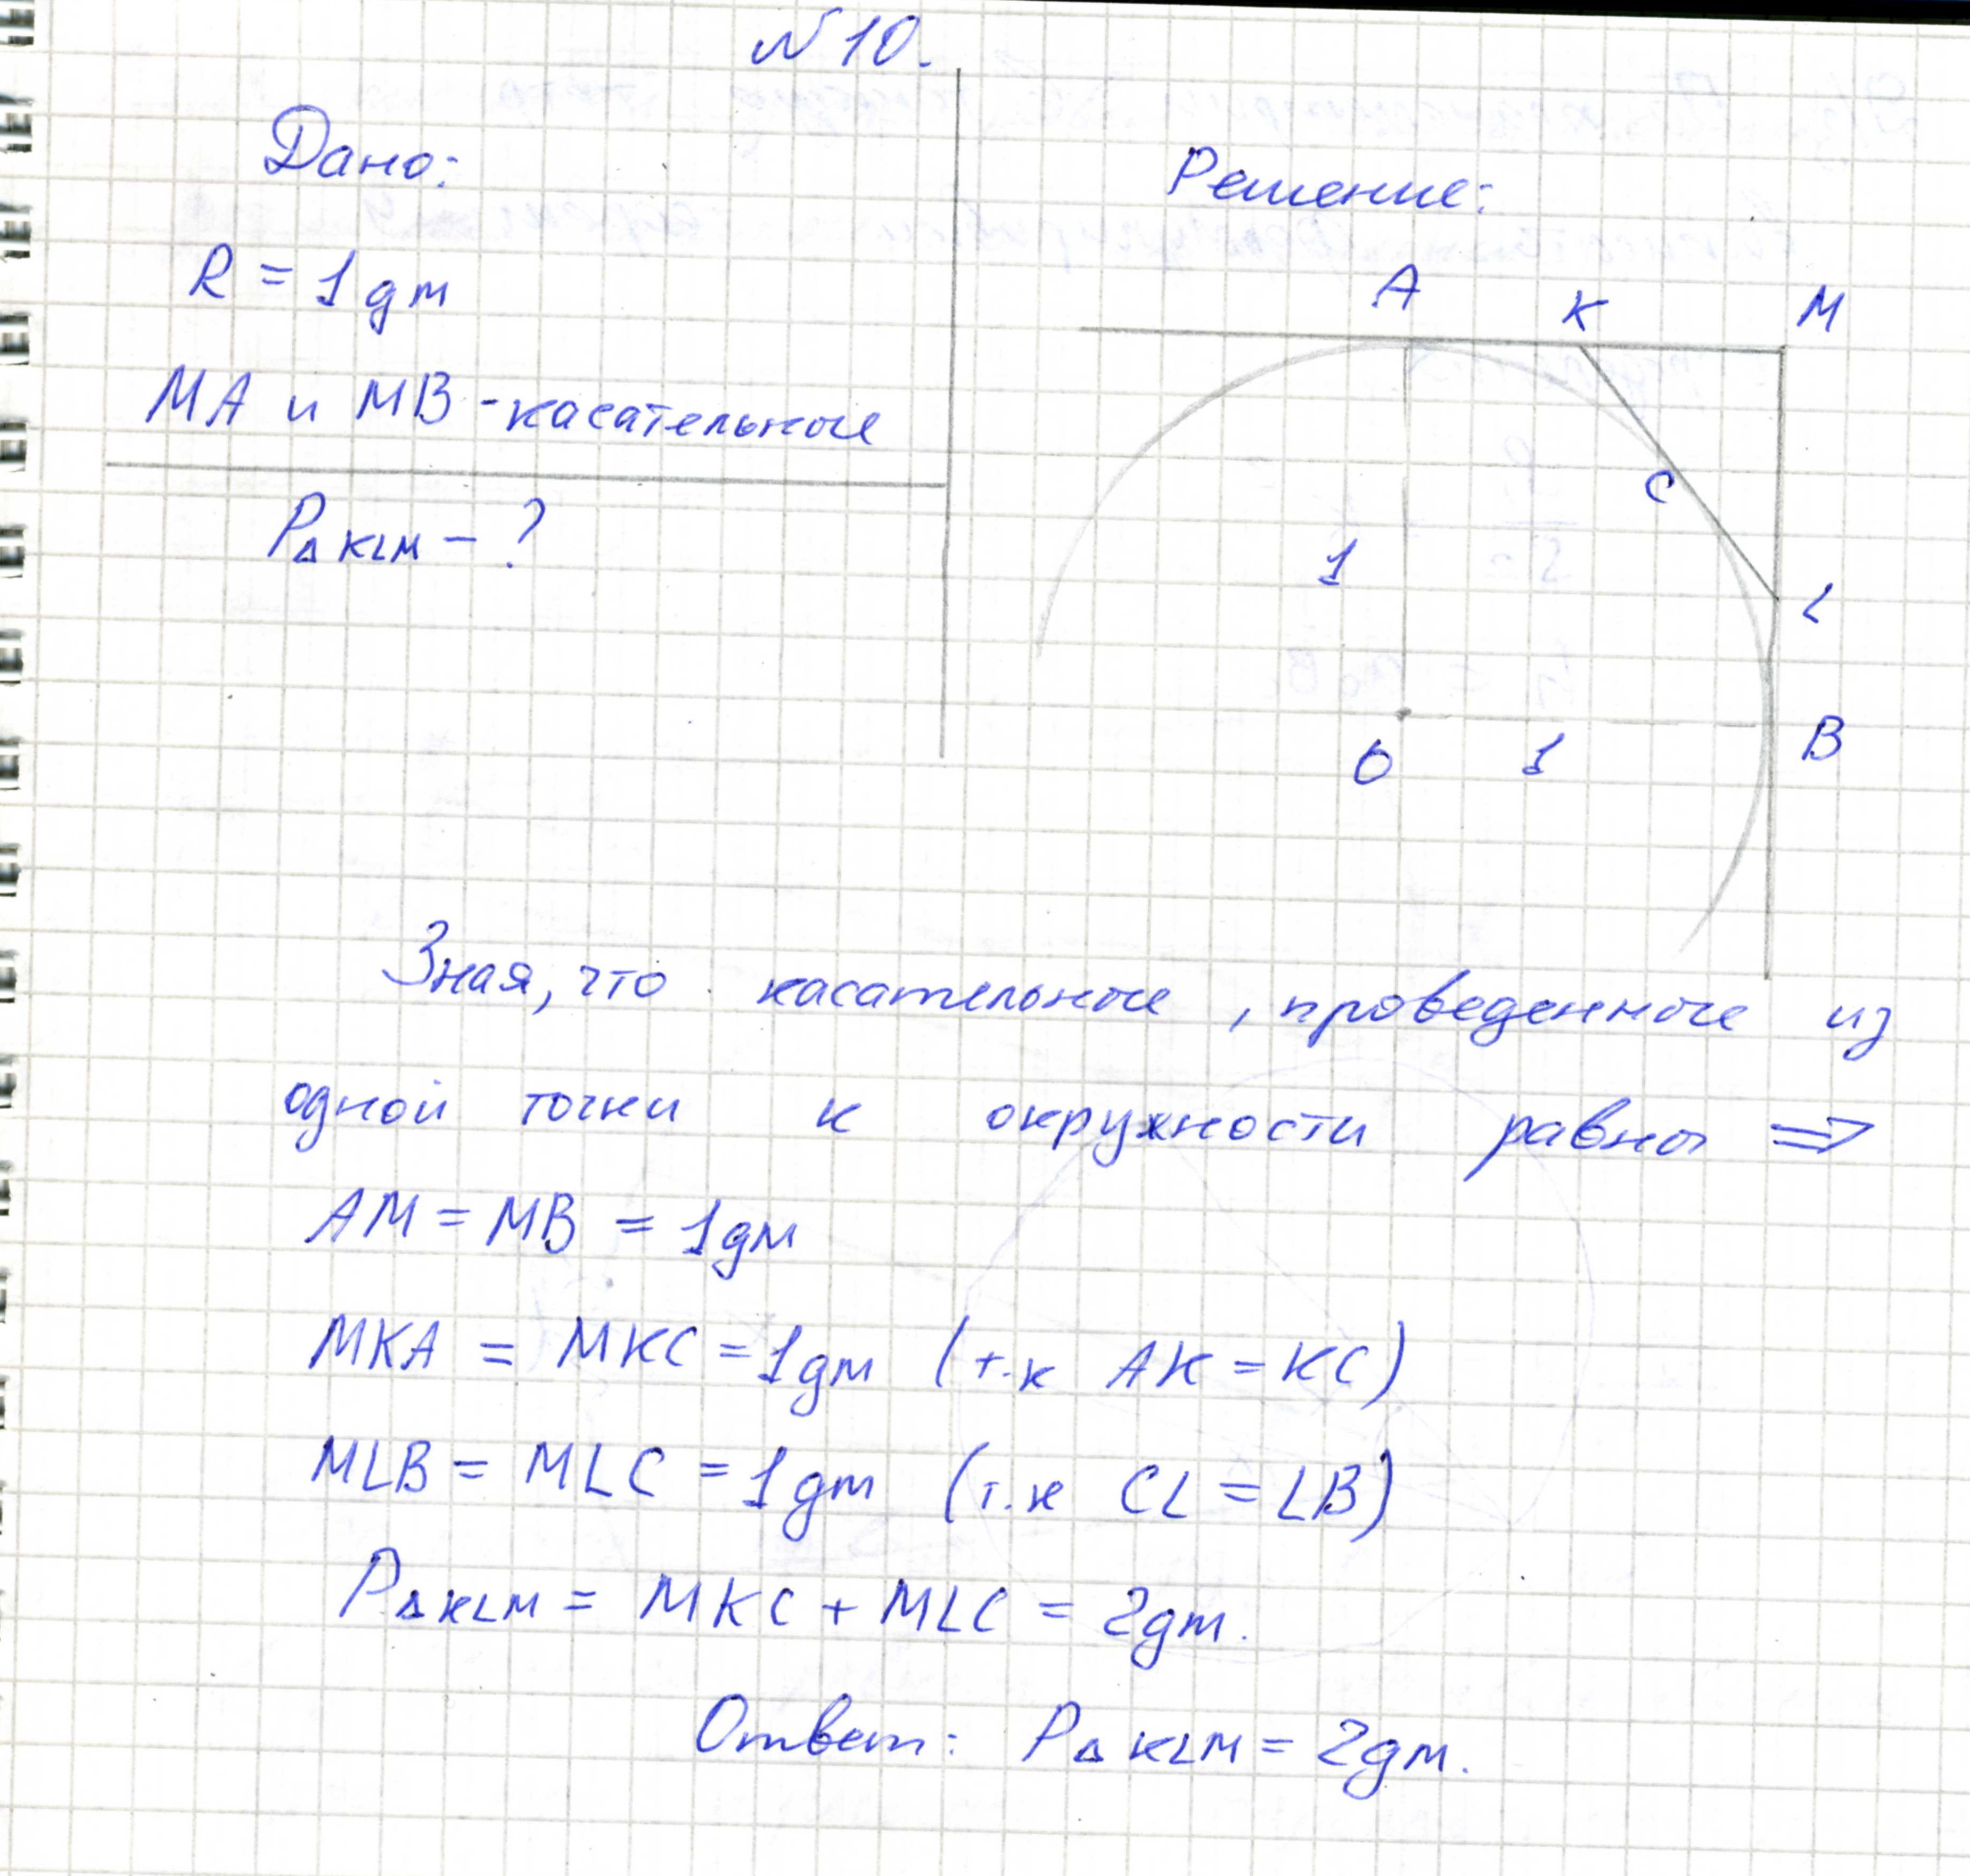 №10.
Дано:
R = 1 дм
MA и MB - касательные
P△KLM - ?
Решение:
A K M
C
1
L
O 1 B
Зная, что касательные, проведенные из
одной точки к окружности равны ⇒
AM = MB = 1дм
MKA = MKC = 1дм (т.к AK = KC)
MLB = MLC = 1дм (т.к CL = LB)
P△KLM = MKC + MLC = 2дм.
Ответ: P△KLM = 2дм.